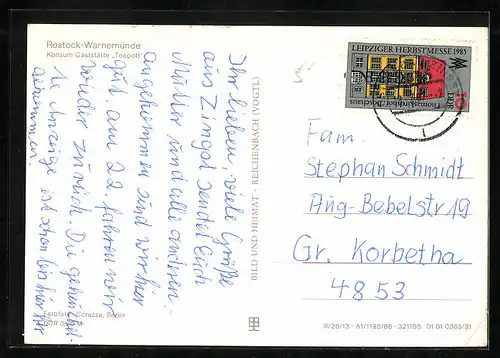 Rostock-Warnemünde
Konsum-Gaststätte „Teepott“
Ihr lieben, viele Grüße
aus Zingst sendet Euch
Mutter und alle andren.
angekommen sind wir hier
gut. am 22. fahren wir
wieder zurück. Die
Anzeige ist schon bis hier
BILD UND HEIMAT · REICHENBACH (VOGTL)
LEIPZIGER HERBSTMESSE 1985
Bosehaus
10
DDR
Fam.
Stephan Schmidt
Aug-Bebelstr 19
Gr. Korbetha
4853
Farbfoto: Corazza, Berlin
III/26/13 · A1/1195/86 · 321195 01 01 0363/31